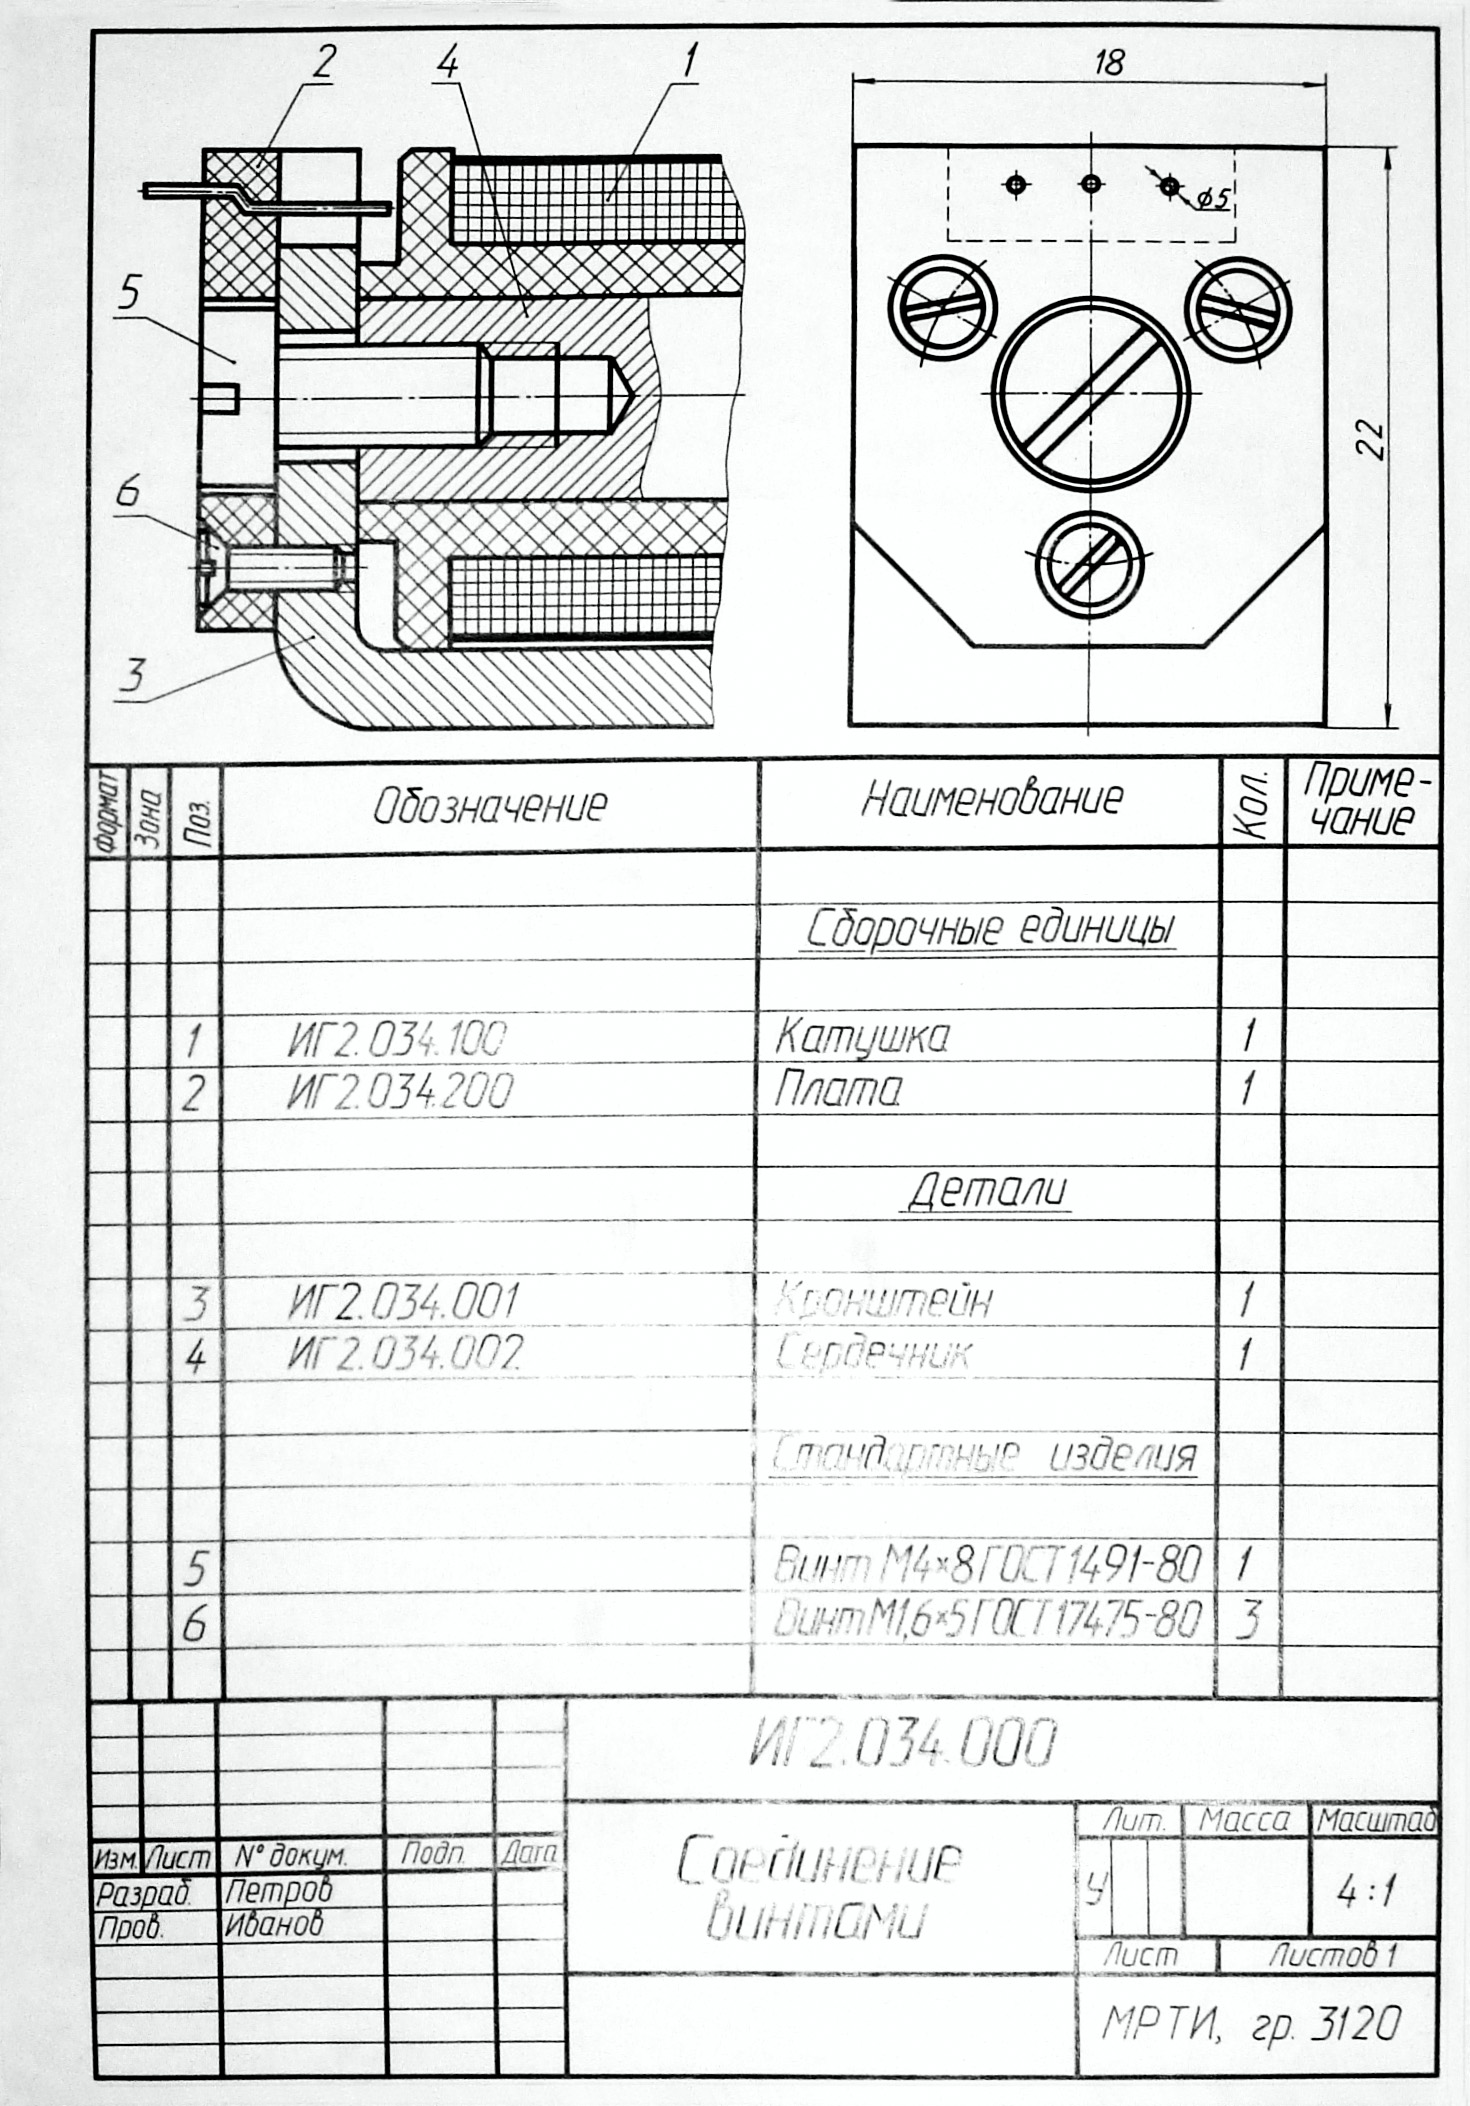 2 4 1
18
φ5
5
22
6
3
Формат Зона Поз. Обозначение Наименование Кол. Приме-
чание
Сборочные единицы
1 ИГ2.034.100 Катушка 1
2 ИГ2.034.200 Плата 1
Детали
3 ИГ2.034.001 Кронштейн 1
4 ИГ2.034.002 Сердечник 1
Стандартные изделия
5 Винт М4×8 ГОСТ 1491-80 1
6 Винт М1,6×5 ГОСТ 17475-80 3
ИГ2.034.000
Изм. Лист № докум. Подп. Дата
Разраб. Петров
Пров. Иванов
Соединение
винтами
Лит. Масса Масштаб
У 4:1
Лист Листов 1
МРТИ, гр. 3120